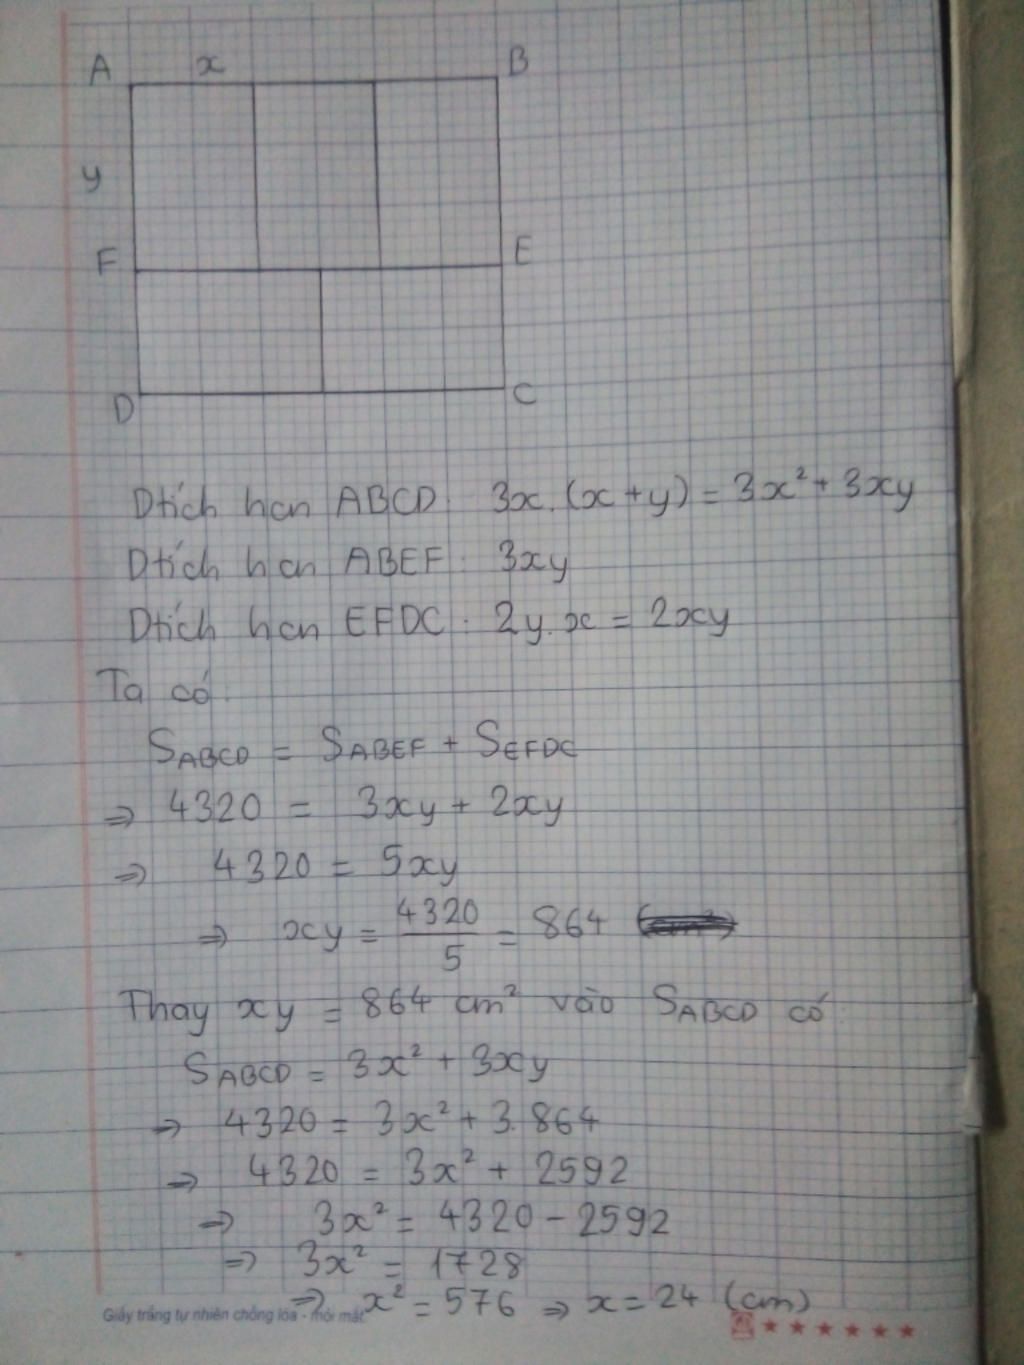 A x B
y
F E
D C
Dtích hcn ABCD: 3x.(x+y) = 3x² + 3xy
Dtích hcn ABEF: 3xy
Dtích hcn EFDC: 2y.x = 2xy
Ta có:
SABCD = SABEF + SEFDC
⇒ 4320 = 3xy + 2xy
⇒ 4320 = 5xy
⇒ xy = 4320/5 = 864
Thay xy = 864 cm² vào SABCD có:
SABCD = 3x² + 3xy
⇒ 4320 = 3x² + 3.864
⇒ 4320 = 3x² + 2592
⇒ 3x² = 4320 - 2592
⇒ 3x² = 1728
⇒ x² = 576 ⇒ x = 24 (cm)
Giấy trắng tự nhiên chống lóa - mỏi mắt